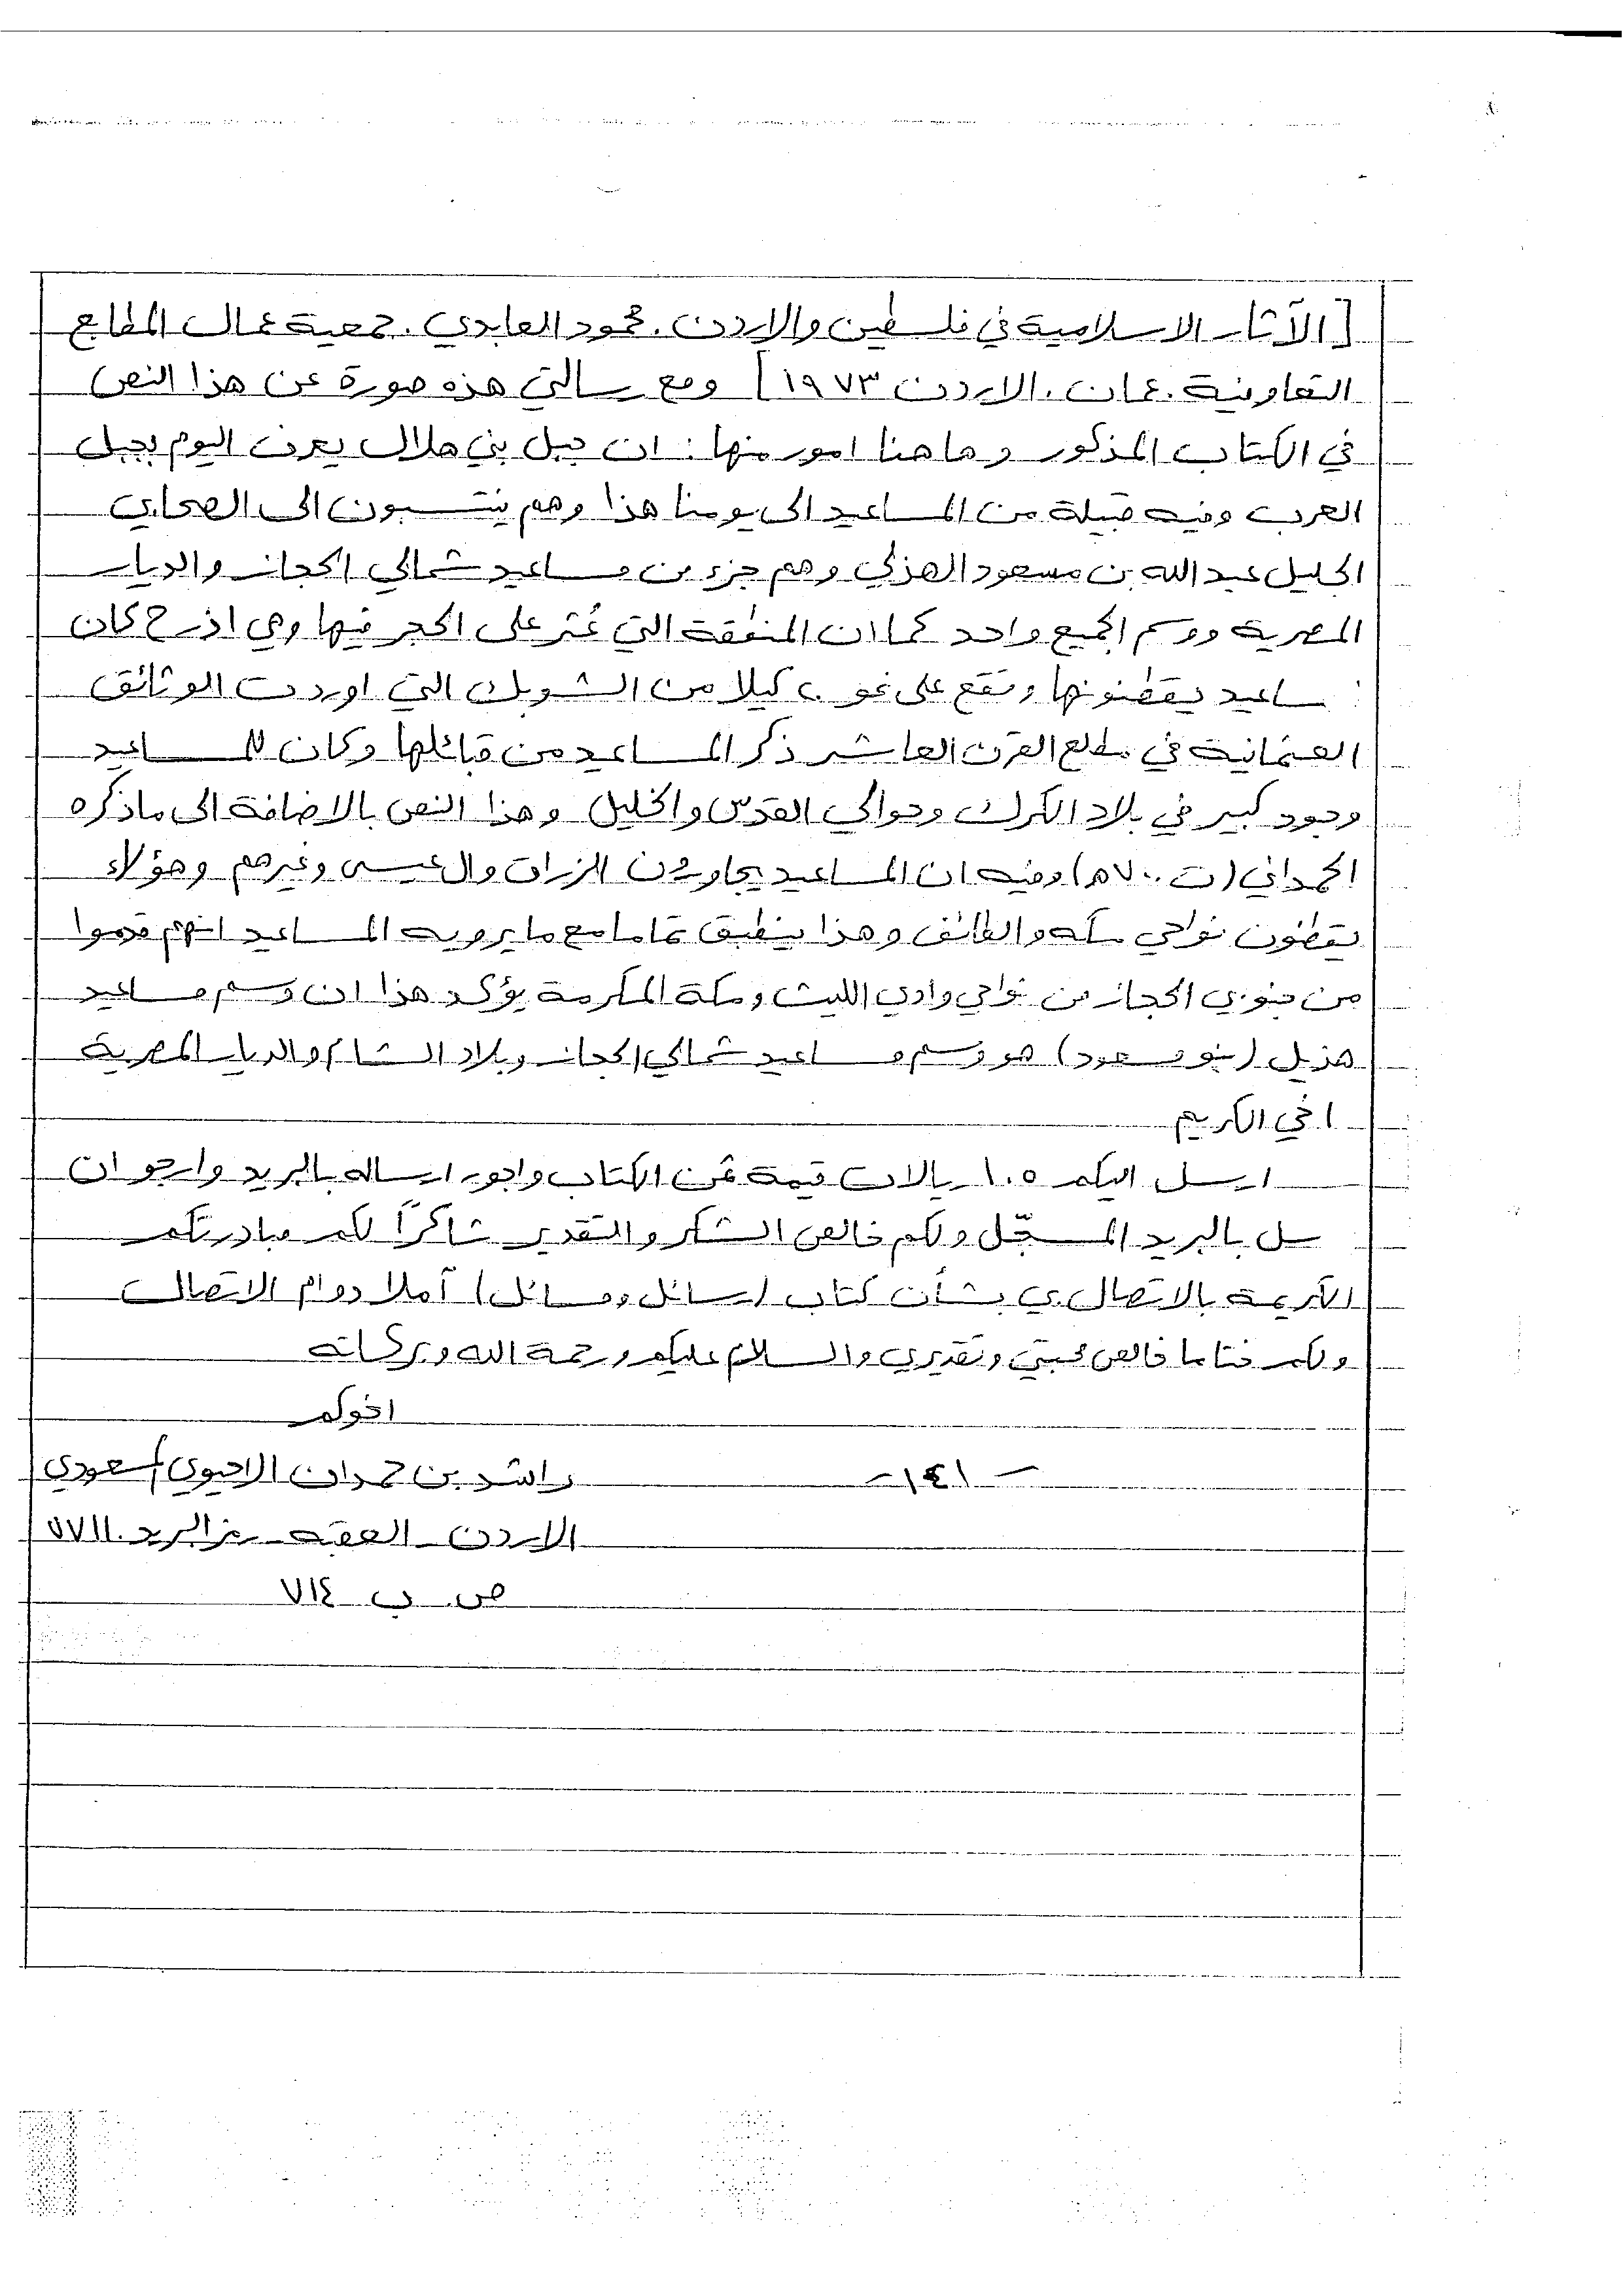 [الآثار الاسلامية في فلسطين والاردن. محمود العابدي. جمعية عمال المطابع
التعاونية. عمان. الاردن ١٩٧٣] ومع رسالتي هذه صورة عن هذا النص
في الكتاب المذكور وهاهنا امور منها: ان جبل بني هلال يعرف اليوم بجبل
العرب وفيه قبيلة من المساعيد الى يومنا هذا وهم ينتسبون الى الصحابي
الجليل عبدالله بن مسعود الهذلي وهم جزء من مساعيد شمالي الحجاز والديار
المصرية ووسم الجميع واحد كما ان المنطقة التي عُثر على الحجر فيها وهي اذرح كان
ساعيد يقطنونها وتقع على نحو ٢٠ كيلا من الشوبك التي اوردت الوثائق
العثمانية في مطلع القرن العاشر ذكر المساعيد من قبائلها وكان للمساعيد
وجود كبير في بلاد الكرك وحوالي القدس والخليل وهذا النص بالاضافة الى ماذكره
الحمداني (ت ٧٠٠ه) وفيه ان المساعيد يجاورون الزراق وال عيسى وغيرهم وهؤلاء
يقطنون نواحي مكه والطائف وهذا ينطبق تماما مع ما يرويه المساعيد انهم قدموا
من جنوبي الحجاز من نواحي وادي الليث ومكة المكرمة يؤكد هذا ان وسم مساعيد
هذيل (بنو مسعود) هو وسم مساعيد شمالي الحجاز وبلاد الشام والديار المصرية
اخي الكريم
ارسل اليكم ١٠٥ ريالات قيمة ثمن الكتاب واجور ارساله بالبريد وارجو ان
سل بالبريد المسجّل ولكم خالص الشكر والتقدير شاكرًا لكم مبادرتكم
الكريمة بالاتصال بي بشأن كتاب (رسائل ومسائل) آملا دوام الاتصال
ولكم ختاما خالص محبتي وتقديري والسلام عليكم ورحمة الله وبركاته
اخوكم
راشد بن حمدان الاحيوي المسعودي
- ١٤١ -
الاردن - العقبه - رمز البريد ٧٧١١٠
ص ب ٧١٤